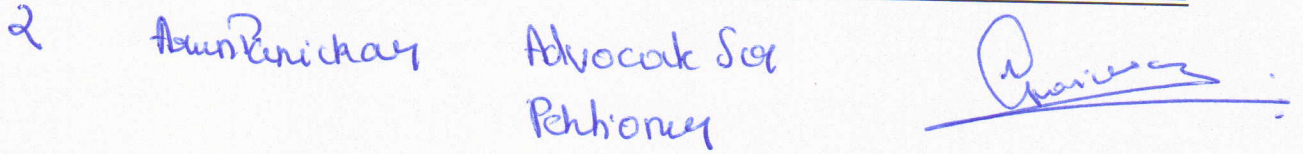 2 Arun Panickar Advocate for
Petitioner